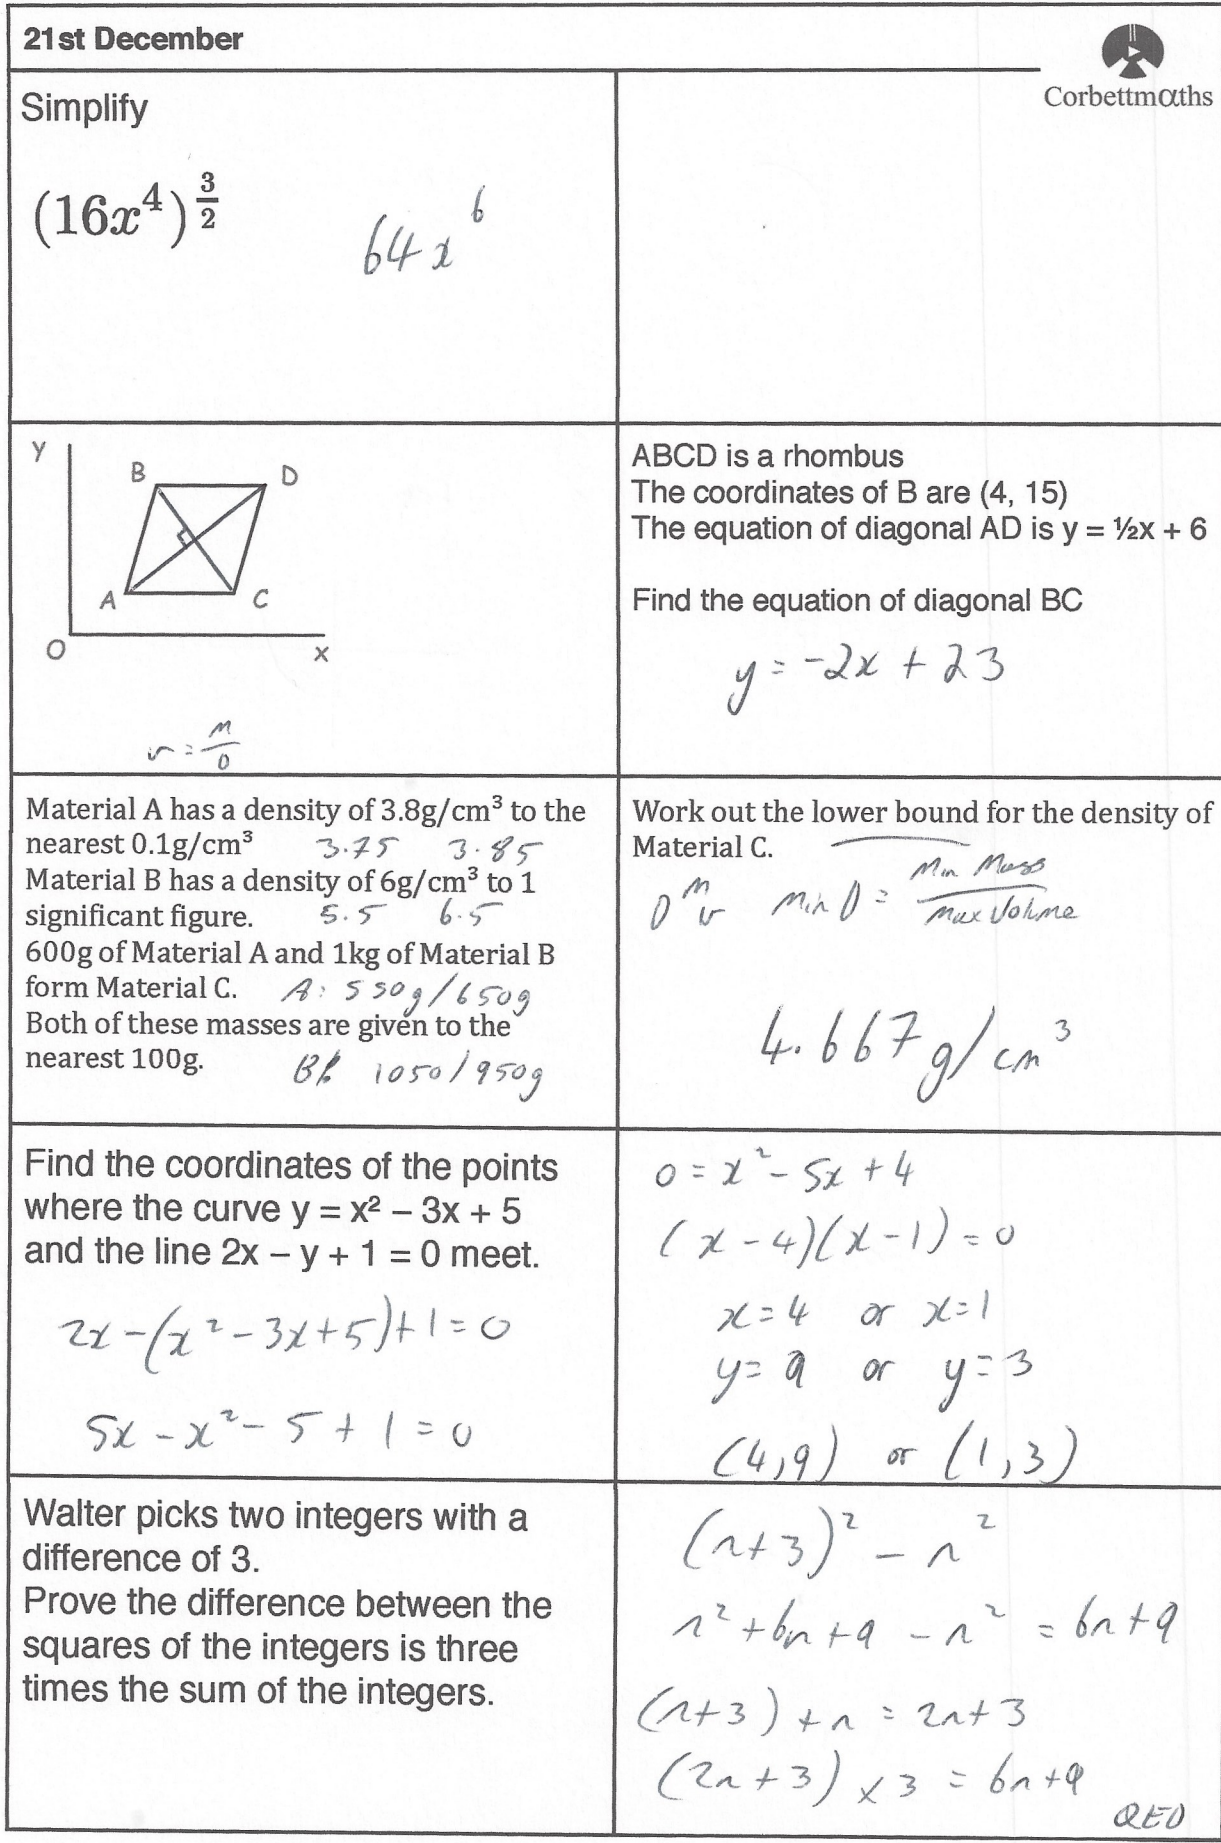 21st December
Corbettmαths
Simplify
(16x⁴)^(3/2)
64x⁶
Y
B
D
A
C
O
x
v = M/D
ABCD is a rhombus
The coordinates of B are (4, 15)
The equation of diagonal AD is y = ½x + 6
Find the equation of diagonal BC
y = -2x + 23
Material A has a density of 3.8g/cm³ to the
nearest 0.1g/cm³ 3.75 3.85
Material B has a density of 6g/cm³ to 1
significant figure. 5.5 6.5
600g of Material A and 1kg of Material B
form Material C. A: 550g/650g
Both of these masses are given to the
nearest 100g. B 1050/950g
Work out the lower bound for the density of
Material C.
D M V Min D = Min Mass / Max Volume
4.667g/cm³
Find the coordinates of the points
where the curve y = x² – 3x + 5
and the line 2x – y + 1 = 0 meet.
2x -(x² - 3x+5)+1 = 0
5x - x² - 5 + 1 = 0
0 = x² - 5x + 4
(x - 4)(x - 1) = 0
x = 4 or x = 1
y = 9 or y = 3
(4,9) or (1,3)
Walter picks two integers with a
difference of 3.
Prove the difference between the
squares of the integers is three
times the sum of the integers.
(n+3)² - n²
n² + 6n + 9 - n² = 6n + 9
(n+3) + n = 2n + 3
(2n + 3) x 3 = 6n + 9
QED